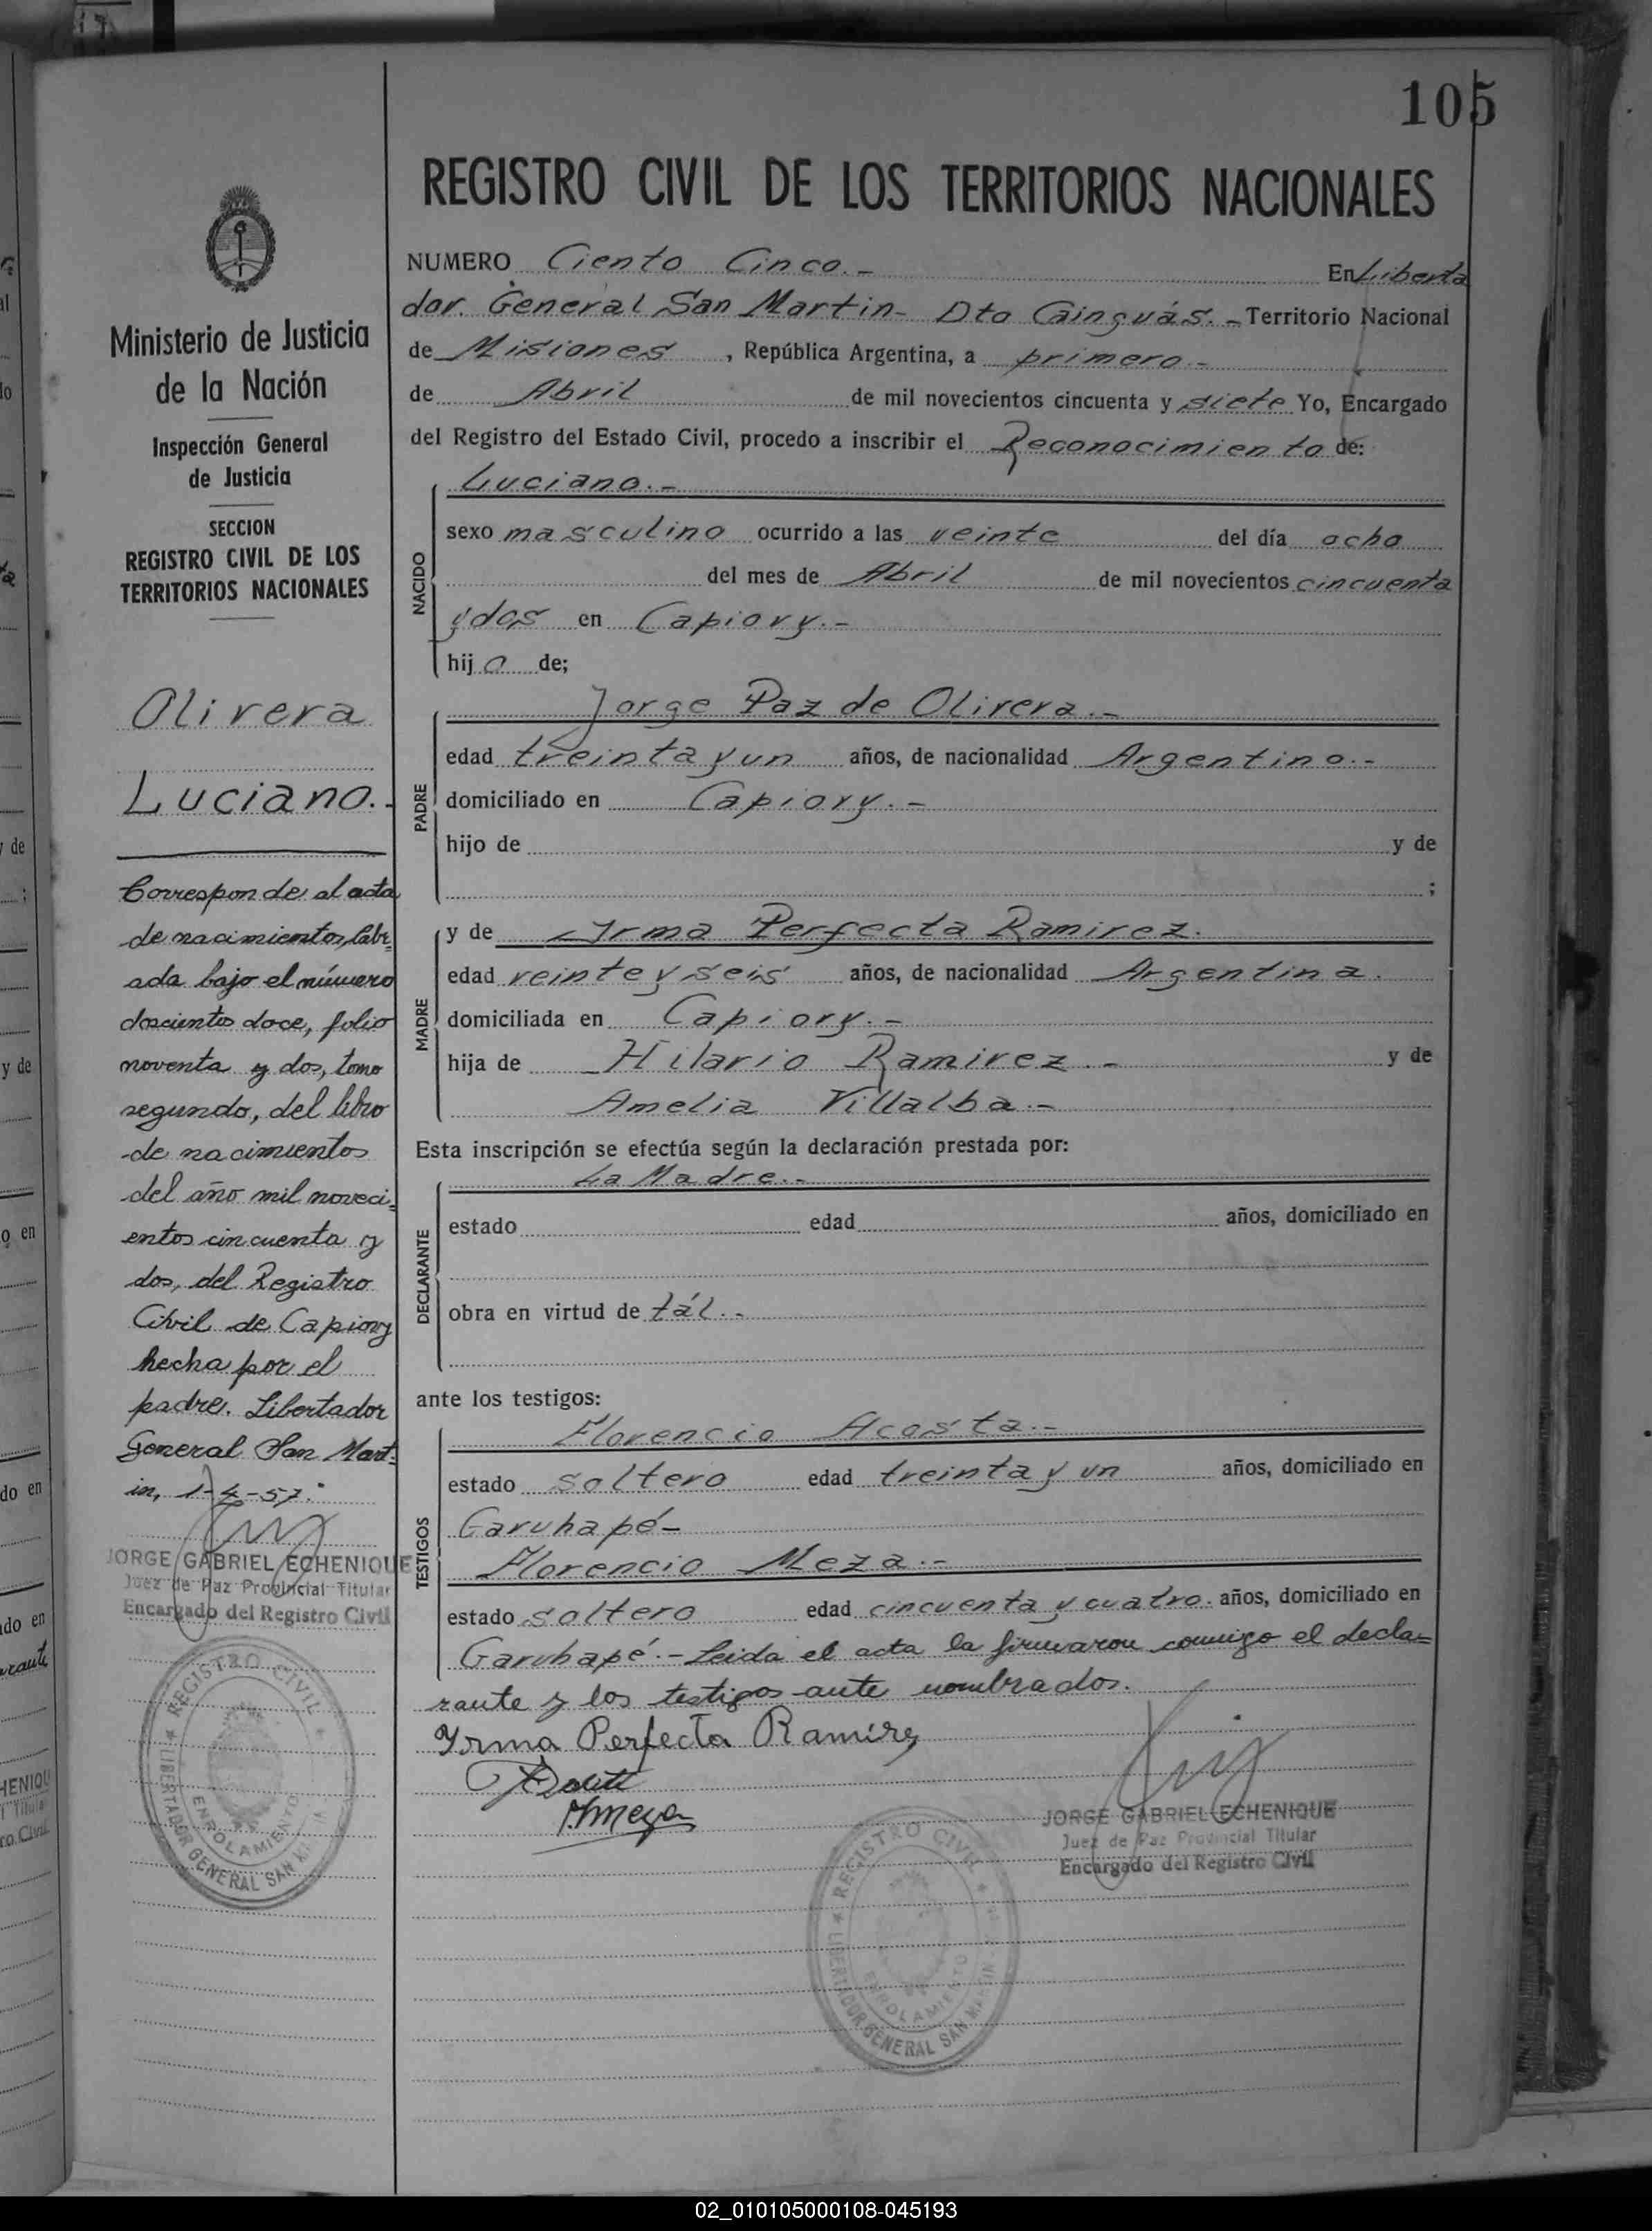 105
REGISTRO CIVIL DE LOS TERRITORIOS NACIONALES
NUMERO Ciento Cinco.- En Liberta
dor. General San Martin- Dto Cainguás.- Territorio Nacional
de Misiones, República Argentina, a primero.-
de Abril de mil novecientos cincuenta y siete Yo, Encargado
del Registro del Estado Civil, procedo a inscribir el Reconocimiento de:
NACIDO
Luciano.-
sexo masculino ocurrido a las veinte del día ocho
del mes de Abril de mil novecientos cincuenta
y dos en Capiovy.-
hijo de;
PADRE
Jorge Paz de Olivera.-
edad treinta y un años, de nacionalidad Argentino.-
domiciliado en Capiovy.-
hijo de y de
;
MADRE
y de Irma Perfecta Ramirez.
edad veinte y seis años, de nacionalidad Argentina.
domiciliada en Capiovy.-
hija de Hilario Ramirez.- y de
Amelia Villalba.-
Esta inscripción se efectúa según la declaración prestada por:
DECLARANTE
La Madre.-
estado edad años, domiciliado en
obra en virtud de tál.-
ante los testigos:
TESTIGOS
Florencio Acosta.-
estado soltero edad treinta y un años, domiciliado en
Garuhapé-
Florencio Meza.-
estado soltero edad cincuenta y cuatro. años, domiciliado en
Garuhapé.- Leida el acta la firmaron conmigo el decla=
rante y los testigos ante nombrados.
Yrma Perfecta Ramirez
Fmeza
JORGE GABRIEL ECHENIQUE
Juez de Paz Provincial Titular
Encargado del Registro Civil
REGISTRO CIVIL
ENROLAMIENTO
LIBERTADOR GENERAL SAN MARTIN
Ministerio de Justicia
de la Nación
Inspección General
de Justicia
SECCION
REGISTRO CIVIL DE LOS
TERRITORIOS NACIONALES
Olivera
Luciano.-
Corresponde al acta
de nacimientos, labr=
ada bajo el número
doscientos doce, folio
noventa y dos, tomo
segundo, del libro
de nacimientos
del año mil noveci=
entos cincuenta y
dos, del Registro
Civil de Capiovy
hecha por el
padre. Libertador
General San Mart=
in, 1-4-57.
JORGE GABRIEL ECHENIQUE
Juez de Paz Provincial Titular
Encargado del Registro Civil
REGISTRO CIVIL
ENROLAMIENTO
LIBERTADOR GENERAL SAN MARTIN
02_010105000108-045193